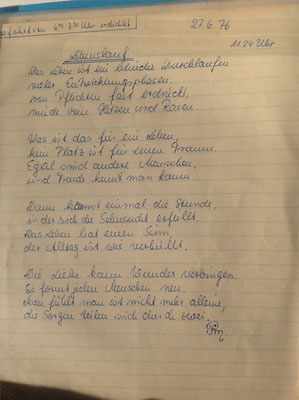 7³⁰ Uhr
27.6.76
11.24 Uhr
Lebenslauf
Das Leben ist ein blindes Durchlaufen
vieler Entwicklungsphasen.
von Pflichten fast erdrückt,
müde vom Hetzen und Rasen.
Was ist das für ein Leben,
kein Platz ist für einen Traum.
Egal sind andere Menschen,
und Freude kennt man kaum.
Dann kommt einmal die Stunde,
in der sich die Sehnsucht erfüllt.
Das Leben hat einen Sinn,
der Alltag ist wie verhüllt.
Die Liebe kann Wunder vollbringen,
Sie formt jeden Menschen neu.
Man fühlt, man ist nicht mehr alleine,
die Sorgen teilen sich durch zwei.